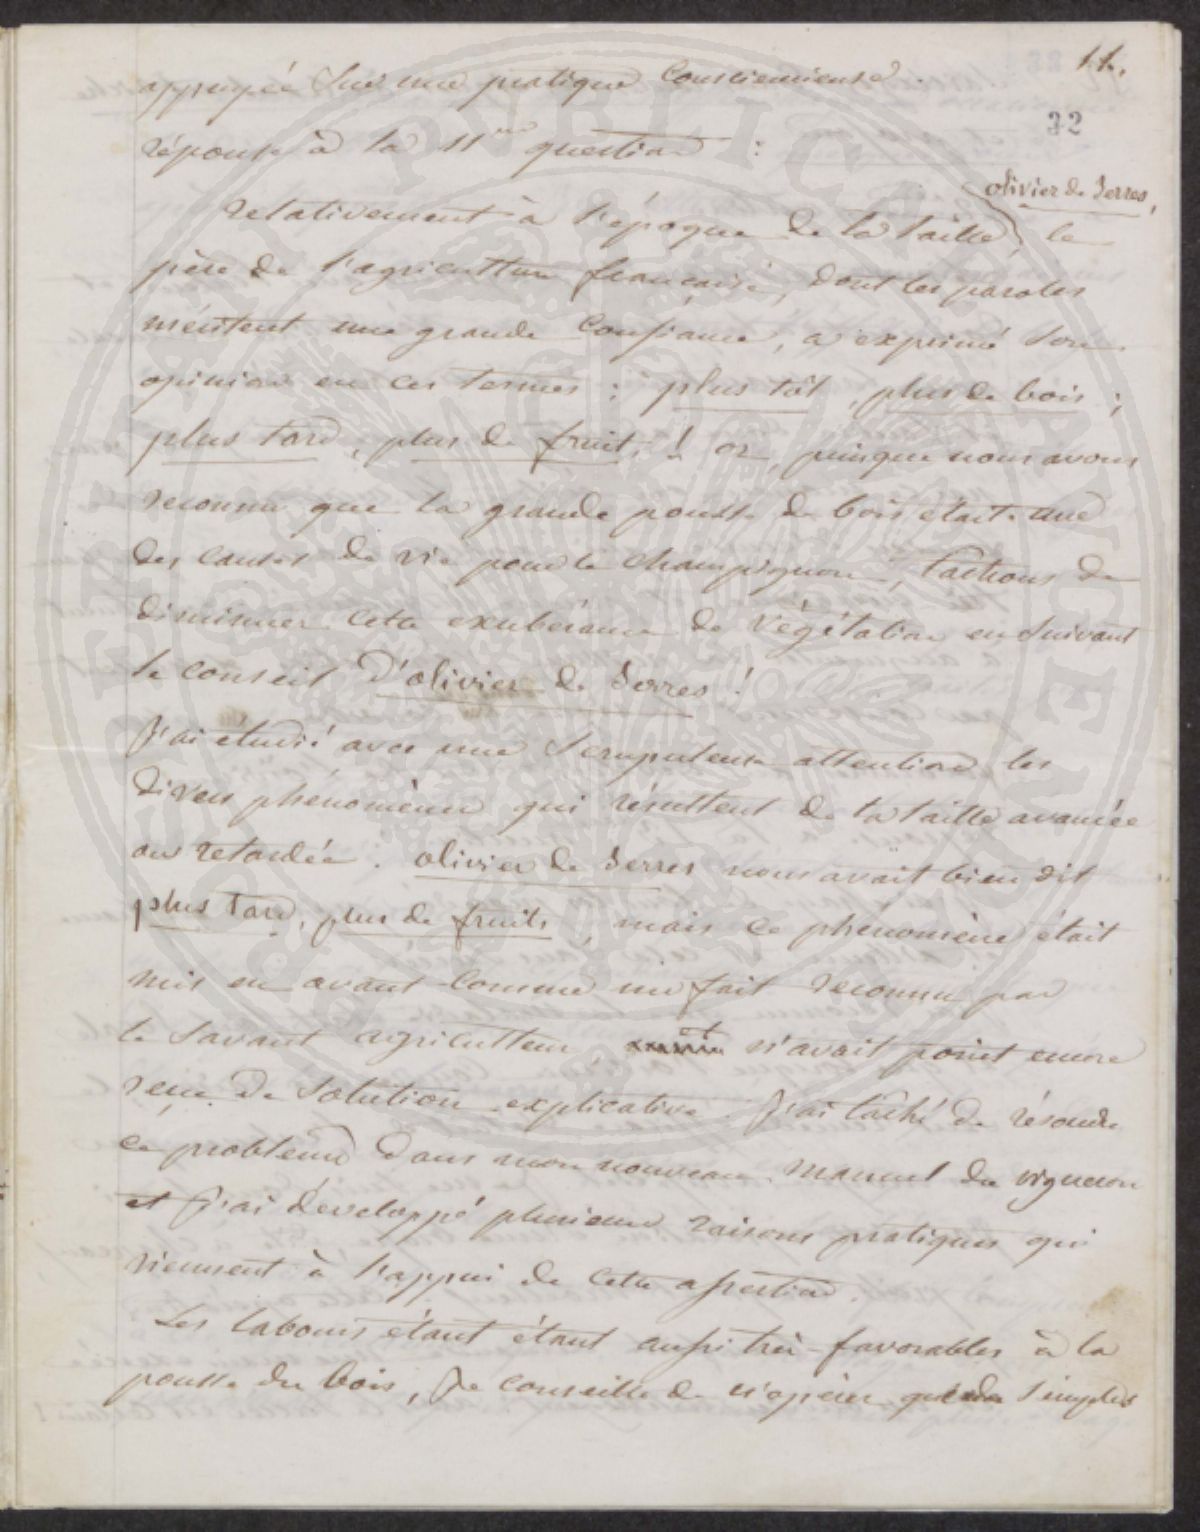 11.
32
appuyée sur une pratique consciencieuse.
réponse à la 11me question :
olivier de Serres,
relativement à l'époque de la taille, le
père de l'agriculture française, dont les paroles
méritent une grande confiance, a exprimé son
opinion en ces termes : plus tôt, plus de bois ;
plus tard, plus de fruit ! or, puisque nous avons
reconnu que la grande pousse de bois était une
des causes de vie pour le champignon, tachons de
diminuer cette exubérance de végétation en suivant
le conseil d'olivier de Serres !
J'ai étudié avec une scrupuleuse attention les
divers phénomènes qui résultent de la taille avancée
ou retardée. olivier de Serres nous avait bien dit
plus tard, plus de fruits, mais ce phénomène était
mis en avant comme un fait reconnu par
le savant agriculteur, et n'avait point encore
reçu de solution explicative. J'ai tâché de résoudre
ce problème dans mon nouveau manuel du vigneron
et j'ai développé plusieurs raisons pratiques qui
viennent à l'appui de cette assertion.
Les labours étant étant aussi très-favorables à la
pousse du bois, je conseille de n'opérer que de simples